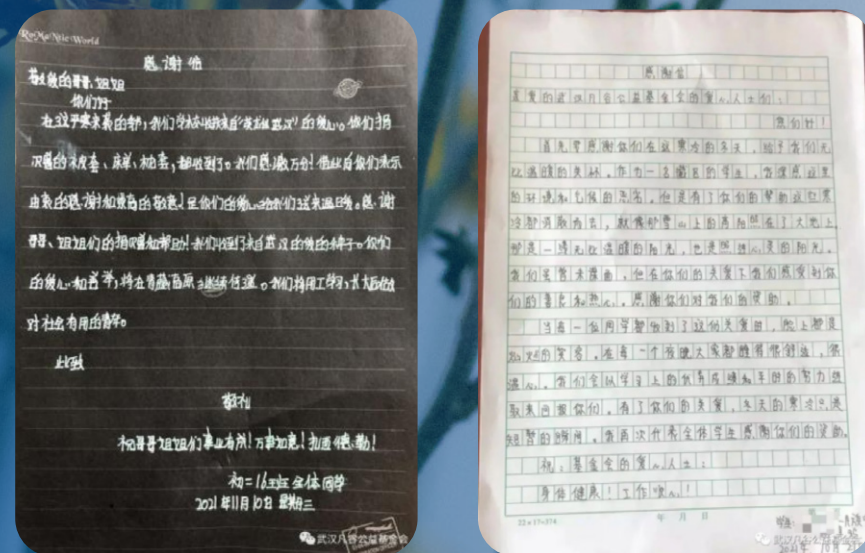 RoMaNtic World
感谢信
敬爱的哥哥、姐姐
你们好
在这个寒冬来临的时节,我们学校收到来自英雄武汉的爱心。你们捐
赠的被套、床单、枕套,都收到了。我们感激万分!借此向你们表示
由衷的感谢和崇高的敬意!是你们的爱心给我们送来温暖。感谢
哥哥、姐姐们的捐赠和帮助!我们收到了来自武汉的爱的种子。你们
的爱心和善举,将在青藏高原上继续传递。我们将用心学习,长大后做
对社会有用的青年。
此致
敬礼
祝哥哥姐姐们事业有成!万事如意!扎西德勒!
初二16班全体同学
2021年11月10日 星期三
武汉凡谷公益基金会
感谢信
亲爱的武汉凡谷公益基金会的爱心人士们:
您们好!
首先要感谢你们在这寒冷的冬天,给予我们无
比温暖的关怀。作为一名藏区的学生,我深感这里
的环境和气候的恶劣。但是有了你们的帮助这些寒
冷都消散而去,就像那雪山上的骄阳照在了大地上,
那是一缕无比温暖的阳光,也是照进心灵的阳光。
我们虽曾未谋面,但在你们的关爱下我们感受到你
们的善良和热心。感谢你们对我们的资助。
当每一位同学都收到了这份关爱时,脸上都是
的笑容。在每一个夜晚大家都睡得很舒适,很
温心。我们会以学习上的优秀成绩和平时的努力进
取来回报你们。有了你们的关爱,冬天的寒冷只是
短暂的瞬间。我再次代表全体学生感谢你们的资助。
祝:基金会的爱心人士:
身体健康!工作顺心!
22×17=374
年 月 日
武汉凡谷公益基金会